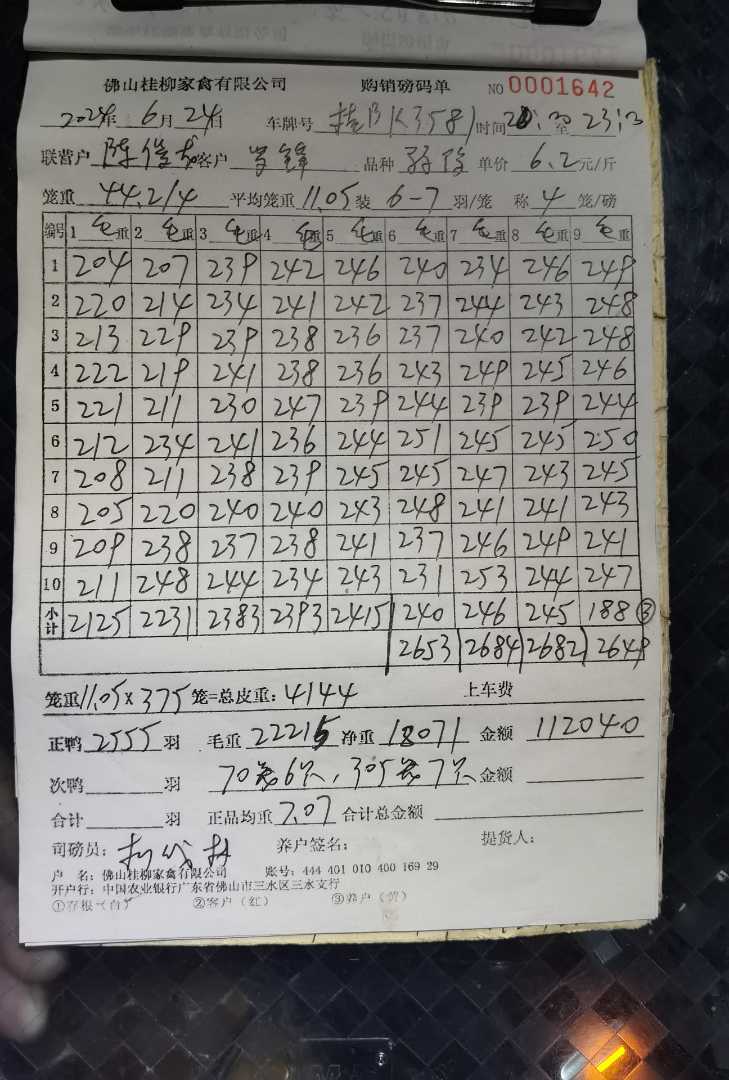 佛山桂柳家禽有限公司 购销磅码单 NO 0001642
2024年 6月 24日 车牌号 桂BK3581 时间 至 23:
联营户 陈 客户 锋 品种 单价 6.2 元/斤
笼重 44.2/4 平均笼重 11.05 装 6-7 羽/笼 称 4 笼/磅
编号 1 毛重 2 毛重 3 毛重 4 毛重 5 毛重 6 毛重 7 毛重 8 毛重 9 毛重
1 204 207 239 242 246 240 234 246 249
2 220 214 234 241 242 237 244 243 248
3 213 229 239 238 236 237 240 242 248
4 222 219 241 238 236 243 249 245 246
5 221 211 230 247 239 244 239 239 244
6 212 234 241 236 244 251 245 245 250
7 208 211 238 239 245 245 247 243 245
8 205 220 240 240 243 248 241 241 243
9 209 238 237 238 241 237 246 249 241
10 211 248 244 234 243 231 253 244 247
小计 2125 2231 2383 2393 2415 240 246 245 188 ③
2653 2684 2682 2649
笼重 11.05 X 375 笼=总皮重: 4144 上车费
正鸭 2555 羽 毛重 22215 净重 18071 金额 112040
次鸭 羽 70笼6只, 305笼7只 金额
合计 羽 正品均重 7.07 合计总金额
司磅员: 养户签名: 提货人:
户 名: 佛山桂柳家禽有限公司 账号: 444 401 010 400 169 29
开户行: 中国农业银行广东省佛山市三水区三水支行
①存根(白) ②客户(红) ③养户(黄)